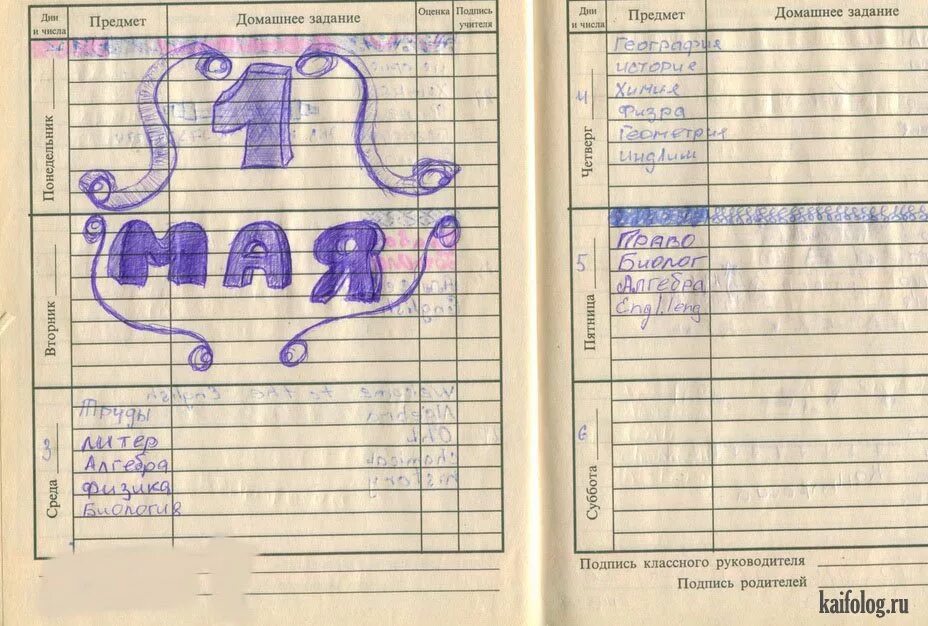 Дни и числа
Предмет
Домашнее задание
Оценка
Подпись учителя
Понедельник
1
Вторник
МАЯ
Среда
3
Труды
литер
Алгебра
Физика
Биология
Дни и числа
Предмет
Домашнее задание
Четверг
4
География
история
Химия
Физра
Геометрия
индлиш
Пятница
5
Право
Биолог
Алгебра
Engl.leng
Суббота
6
Подпись классного руководителя
Подпись родителей
kaifolog.ru